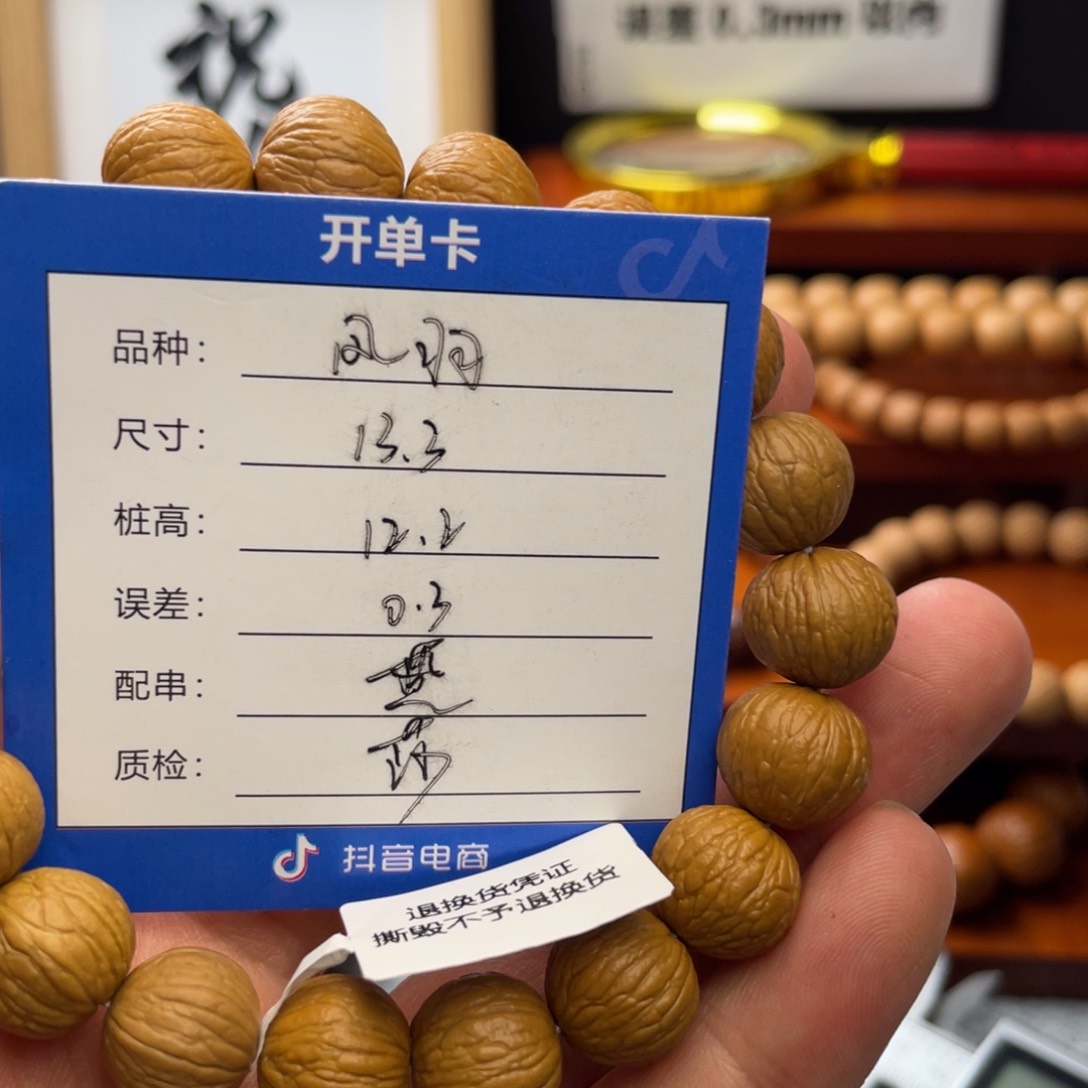 祝
误差 0.3mm 以内
开单卡
品种： 凤羽
尺寸： 13.3
桩高： 12.2
误差： 0.3
配串：
质检：
抖音电商
退换货凭证
撕毁不予退换货